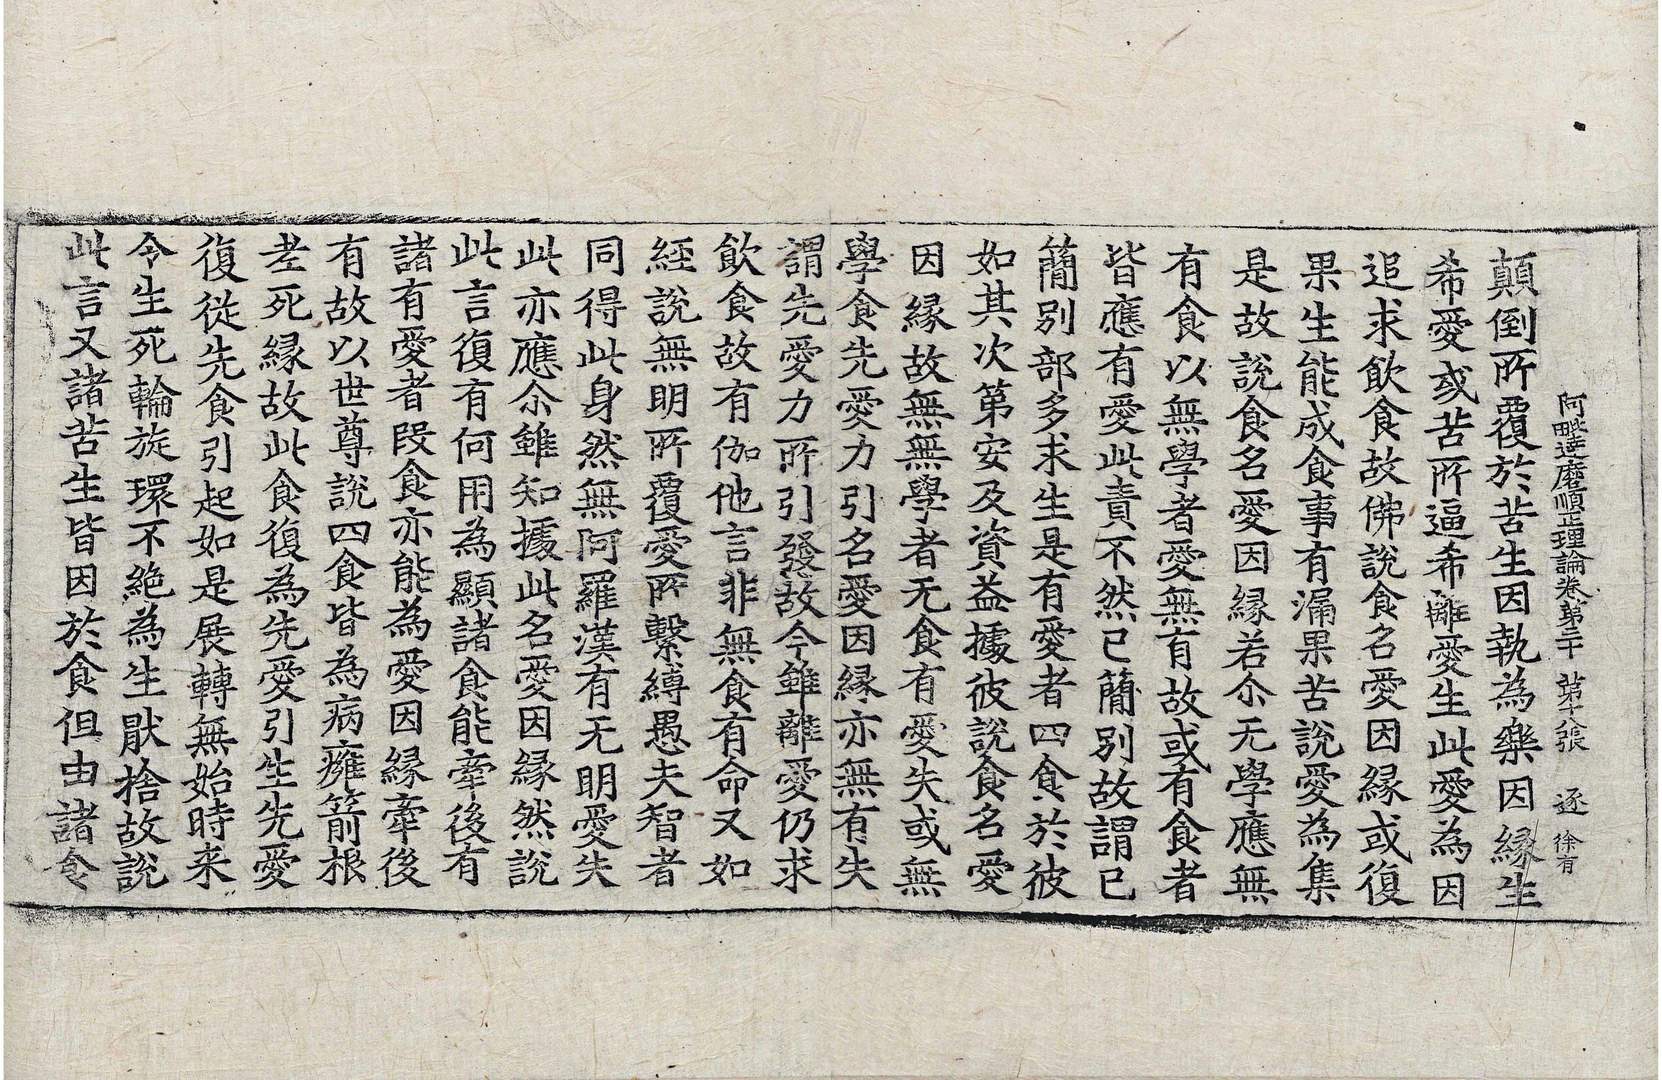 阿毗達磨順正理論卷第三十 第十八張 逐 徐有
顛倒所覆於苦生因執為樂因緣生
希愛或苦所逼希離愛生此愛為因
追求飲食故佛說食名愛因緣或復
果生能成食事有漏果苦說愛為集
是故說食名愛因緣若尒无學應無
有食以無學者愛無有故或有食者
皆應有愛此責不然已簡別故謂已
簡別部多求生是有愛者四食於彼
如其次第安及資益據彼說食名愛
因緣故無無學者无食有愛失或無
學食先愛力引名愛因緣亦無有失
謂先愛力所引發故今雖離愛仍求
飲食故有伽他言非無食有命又如
經說無明所覆愛所繫縛愚夫智者
同得此身然無阿羅漢有无明愛失
此亦應尒雖知據此名愛因緣然說
此言復有何用為顯諸食能牽後有
諸有愛者段食亦能為愛因緣牽後
有故以世尊說四食皆為病癰箭根
老死緣故此食復為先愛引生先愛
復從先食引起如是展轉無始時来
令生死輪旋環不絕為生猒捨故說
此言又諸苦生皆因於食但由諸食